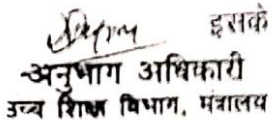 इसके
अनुभाग अधिकारी
उच्च शिक्षा विभाग, मंत्रालय